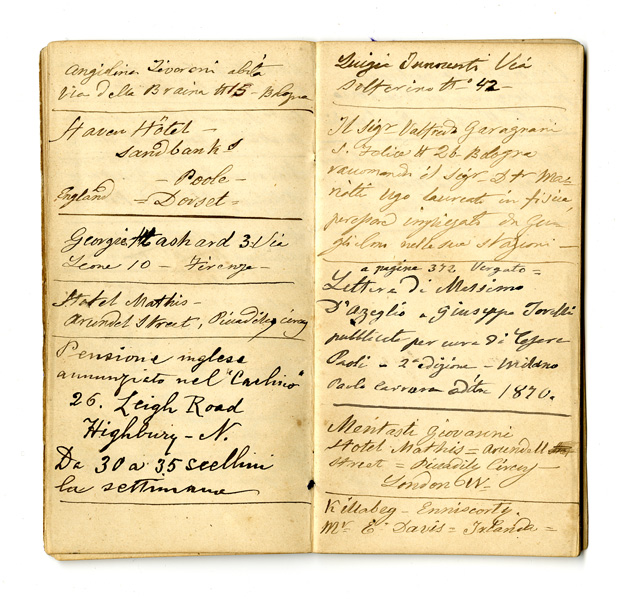 Angiolina Zivoroni abita
Via della Braina N 15 - Bologna
Haven Hôtel -
Sandbanks
- Poole -
England = Dorset =
Georgie Hashard 3 Via
Leone 10 - Firenze -
Hotel Mathis -
Arundel Street, Picadily circus
Pensione inglese
annunziato nel "Carlino"
26. Leigh Road
Highbury - N.
Da 30 a 35 scellini
la settimana
Luigia Innocenti Via
Solferino N° 42 -
Il Sigr Valfredo Garagnani
S. Felice N 26 Bologna
racomanda il Sigr Dtr Mas=
notti Ugo laureato in fisica,
per impiegato da Gu=
glielmo nelle sue stazioni -
a pagina 372 Vergato =
Lettera di Massimo
D'Azeglio a Giuseppe Torelli
pubblicate per cura di Cesare
Paoli - 2a edizione - Milano
Paolo Carrara edite 1870.
Mentasti Giovanni
Hotel Mathis = Arundell
Street = Picadile Circus -
London W -
Killabeg - Enniscorty.
Mr. E. Davis = Irlanda =